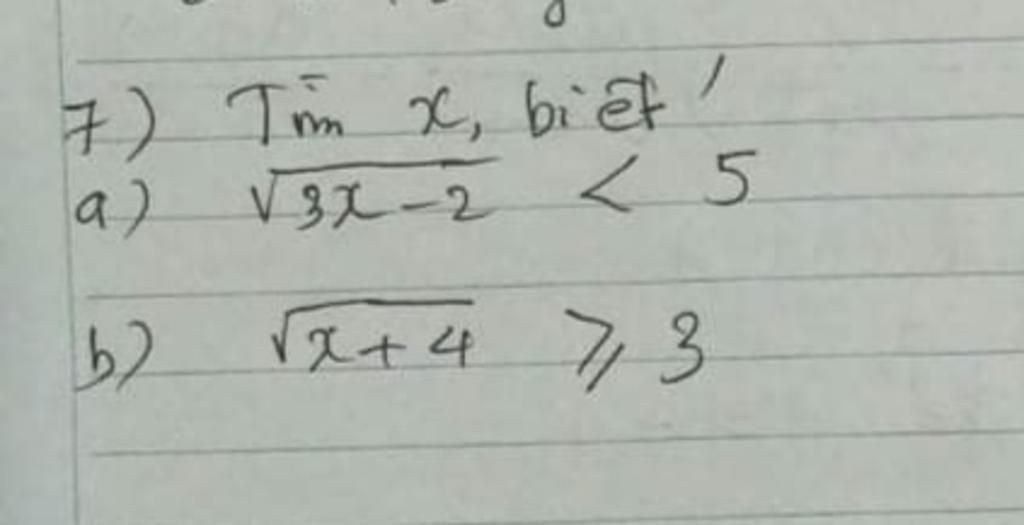 7) Tìm x, biết
a) √3x-2 < 5
b) √x+4 ⩾ 3